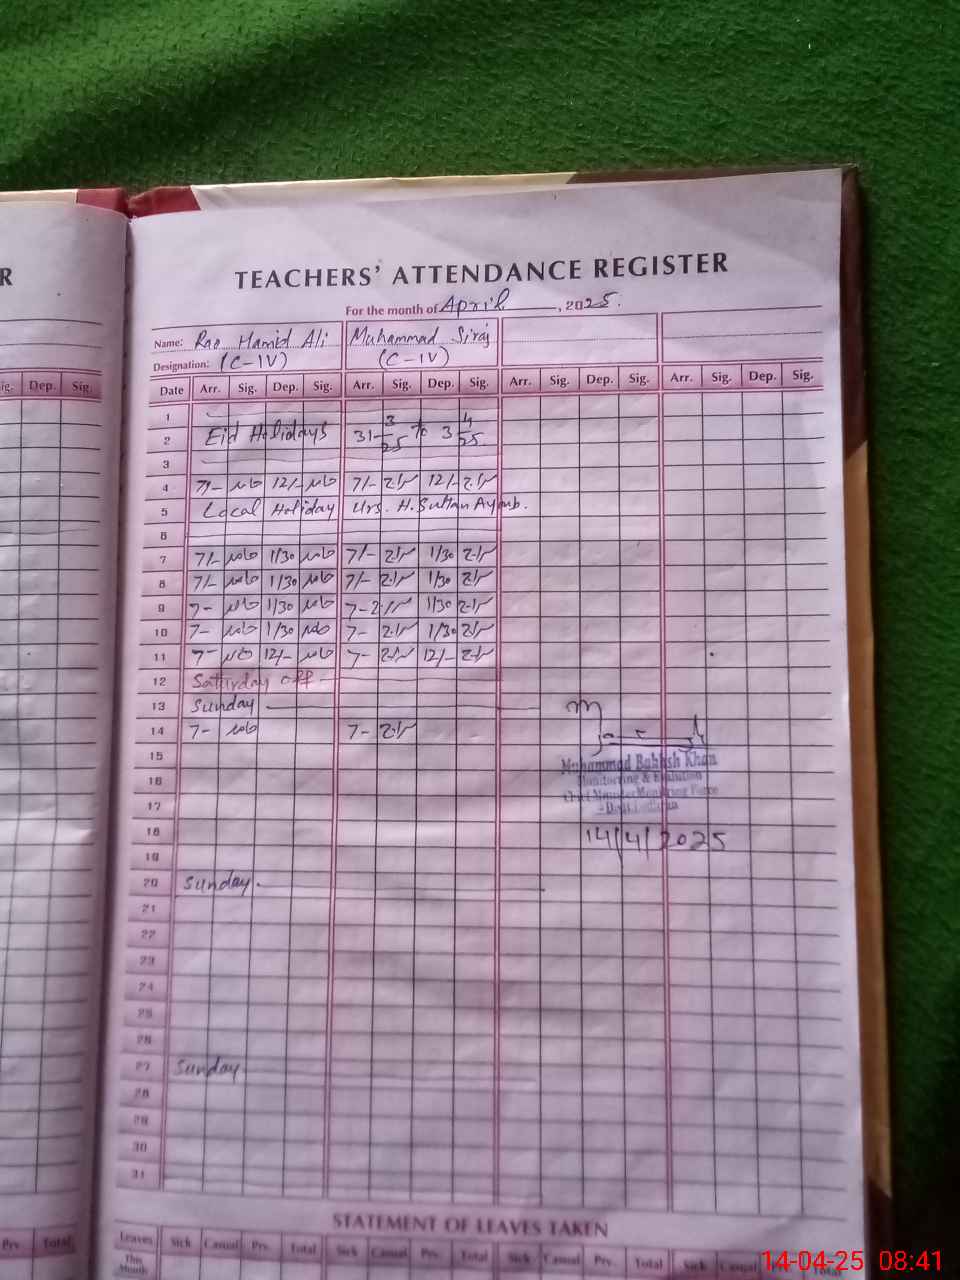 R
TEACHERS' ATTENDANCE REGISTER
For the month of April, 2025.
Name: Rao Hamid Ali Muhammad Siraj
Designation: (C-IV) (C-IV)
ig. Dep. Sig. Date Arr. Sig. Dep. Sig. Arr. Sig. Dep. Sig. Arr. Sig. Dep. Sig. Arr. Sig. Dep. Sig.
1
2 Eid Holidays 31-3/25 to 3 4/25
3
4 7/- 12/- 7/- 12/-
5 Local Holiday Urs. H. Sultan Ayoub.
6
7 7/- 1/30 7/- 1/30
8 7/- 1/30 7/- 1/30
9 7- 1/30 7- 1/30
10 7- 1/30 7- 1/30
11 7- 12/- 7- 12/-
12 Saturday off
13 Sunday
14 7- 7-
15
Muhammad Bakhsh Khan
16
Monitoring & Evaluation
Chief Minister Monitoring Force
17
18
14/4/2025
19
20 Sunday.
21
22
23
24
25
26
27 Sunday
28
29
30
31
STATEMENT OF LEAVES TAKEN
Prv. Total Leaves Sick Casual Prv. Total Sick Casual Prv. Total Sick Casual Prv. Total Sick Casual Total
This Month
14-04-25 08:41